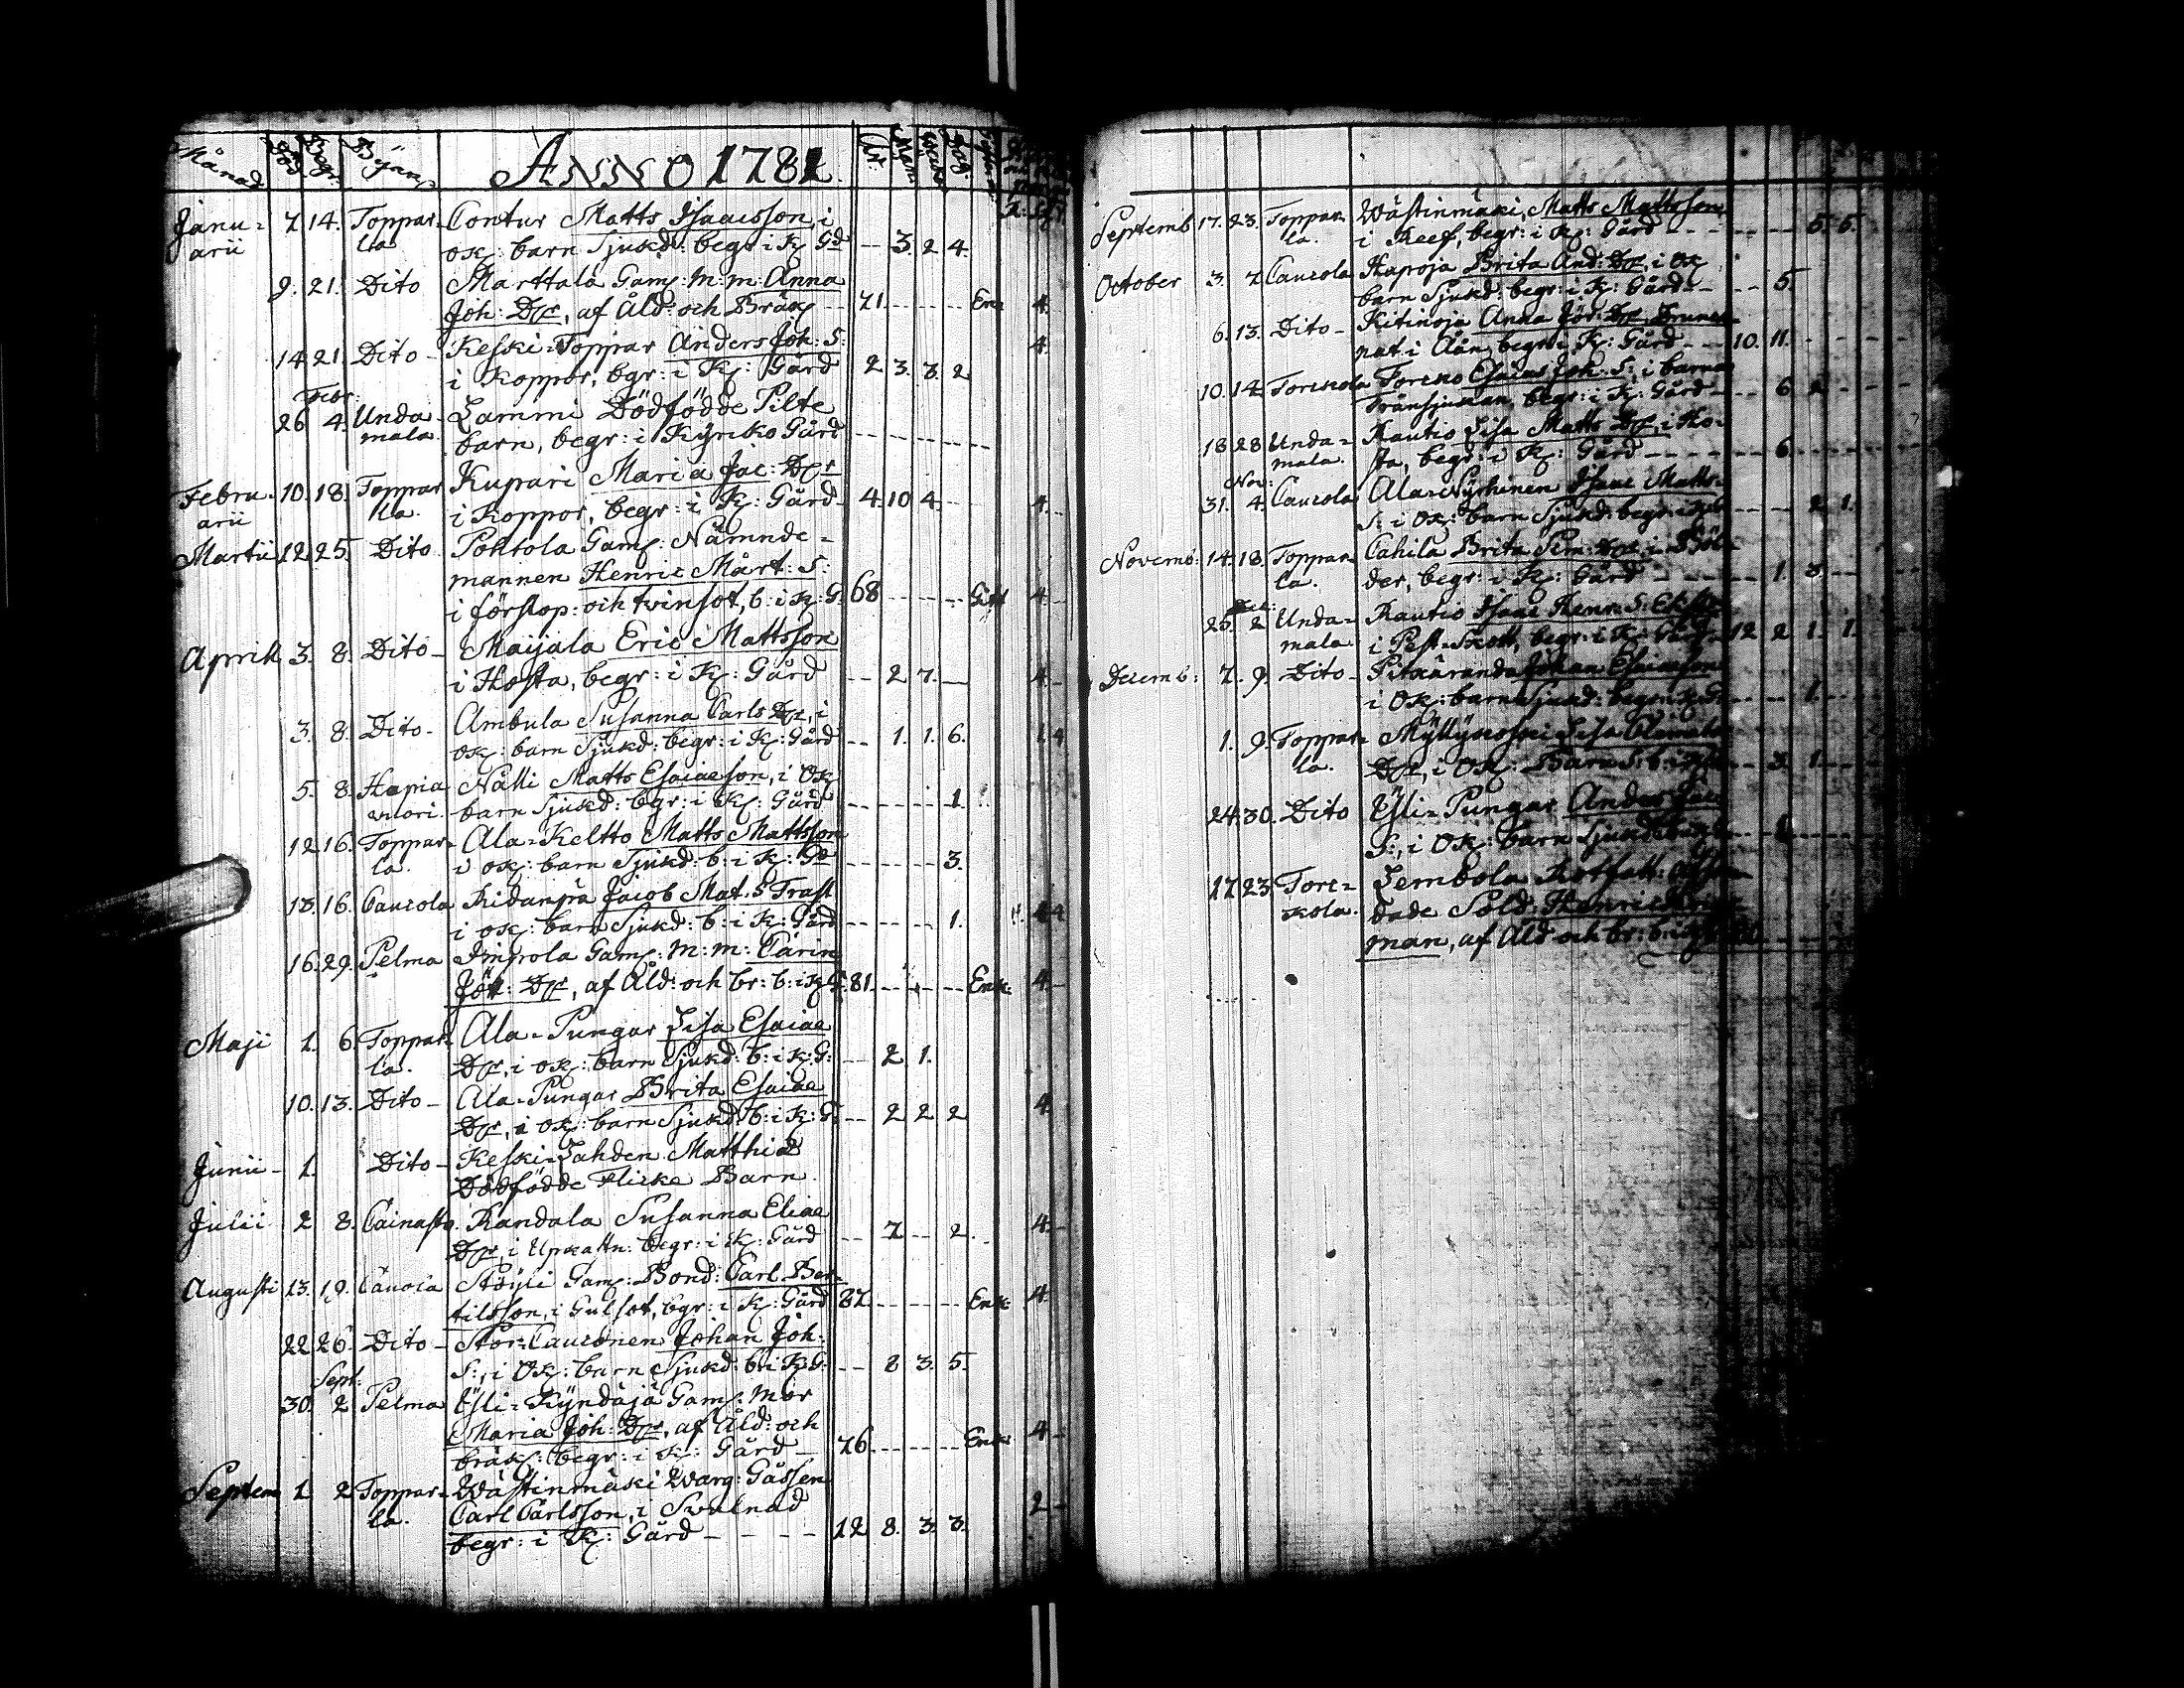 Månad Död Begr: Byar ANNO 1781. År. Mån: Wecko Dag.
Janu= 7 14. Toppar= Contur Matts Isaacsson, i
arii la ok: barn Sjukd: begr: i K: Gd -- 3. 2 4.
9. 21. Dito Marttala Gam: m: m: Anna
Joh: Dr, af Åld: och Bräk 71. Enk 4.
14 21 Dito - Keski-Toppar Anders Joh: S: 4.
i Koppor, bgr: i K: Gård 2 3. 3. 2
Febr:
26 4. Unda- Lammi Dödfödde Pilte
mala barn, begr: i Kyrko Gård
Febru- 10. 18. Toppar Kupari Maria Jac: Dr
arii la. i Koppor, begr: i K: Gård - 4. 10 4. 4.
Martii 12 25. Dito Pohtola Gam: Nämnde=
mannen Henric Mårt: S:
i förstop: och tvinsot, b: i K: G. 68 Gift 4
Aprilis 3. 8. Dito - Maijala Eric Mattsson
i Hosta, begr: i K: Gård -- 2 7. 4.
3. 8. Dito - Ambula Susanna Carls Dr, i
ok: barn Sjukd: begr: i K: Gård -- 1. 1. 6. 4
5. 8. Hapia Nälli Matts Esaiaeson, i Ok
barn Sjukd: bgr: i K: Gård 1.
12 16. Toppar= Ala-Keltto Matts Mattsson
la. i ok: barn Sjukd: b: i K: Gd 3.
13. 16. Caucola Ridanpä Jacob Mat. S
i ok: barn Sjukd: b: i K: Gård 1. 4
16. 29. Pelma Improla Gam: m: m: Carin
Dr, af Åld: och br: b: i K G. 81. Enk: 4.
Maji 1. 6. Toppar= Ala-Pungar Lisa Esaiae
la. Dr, i ok: barn Sjukd: b: i K: G: -- 2 1.
10. 13. Dito - Ala-Pungar Brita Esaiae
Dr, i ok: barn Sjukd: b: i K: G: -- 2 2 2 4
Junii - 1. Dito - Keski-Lahden Matthiae
Dödfödde Flicke Barn.
Julii 2 8. Cainasto. Randala Susanna Eliae
Dr, i begr: i K: Gård -- 7 -- 2. 4.
Augusti 13. 19. Stöyli Gam: Bond: Carl Ber=
tilsson, i Gulsot, bgr: i K: Gård 87 Enk: 4.
22 26 Dito - Stor-Cauconen Johan Joh:
S:, i Ok: barn Sjukd: b: i K: G: -- 8 3. 5.
Sept:
30. 2 Pelma Yli-Kyndäjä Gam: Mor
Maria Joh: Dr, af Åld: och
bräk: begr: i K: Gård - 76 Enk 4
Septem 1 2 Toppar= Wästinmäki Warg: Gåssen
la. Carl Carlsson, i Svulnad 2
begr: i K: Gård - - - - 12 8. 3. 3.
Septemb 17. 23. Toppar Wästinmäki, Matts Mattsson
la. i begr: i K: Gård - - - 5. 5.
October 3. 7 Caucola Hapoja Brita And: Dr, i Ok
barn Sjukd: begr: i K: Gård - - - 5.
6. 13. Dito - Kitinoja Anna Dr, Drunck=
nat i Åån, begr: i K: Gård - - 10. 11.
10. 14 Torckola Torcko Esaias Joh. S: i barna
Tränsjukan, begr: i K: Gård - - 6. 2
18 28 Unda= Rautio Lisa Matts Dr, i Ho=
mala. sta, begr: i K: Gård - - 6.
Nov:
31. 4. Caucola Ala-Nyrhinen Isaac Matts
S: i Ok: barn Sjukd: begr: 2 1.
Novemb: 14. 18. Toppar= Cahila Brita Sim: Dr i Böl=
la. der, begr: i K: Gård 1. 3.
Dec:
25. 2 Unda= Rautio Isaac Henr: S:
mala. i begr: i K: Gård - 12 2 1. 1.
Decemb: 7. 9. Dito - Pitkäranda Johan Esaiaeson
i Ok: barn Sjukd: begr: 1.
1. 9. Toppar= Myllykoski Lisa
la. Dr, i Ok: Barn S: 3. 1.
24 30. Dito Yli-Pungar Anders
S:, i Ok: barn Sjukd:
17 23 Torc= Lembola
kola. Sold: Henric
man, af Åld och br: